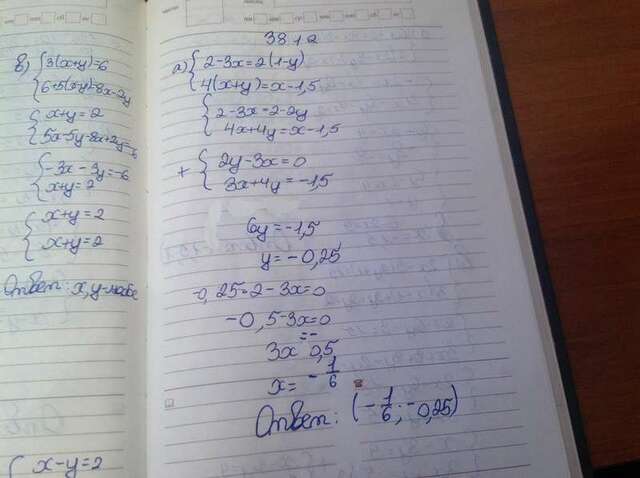 в) 3(x+y)=6
6+5(x-y)=8x-2y
x+y=2
5x-5y-8x+2y=-6
-3x-3y=-6
x+y=2
x+y=2
x+y=2
Ответ: x,y-любое
x-y=2
38.1.2
а) 2-3x=2(1-y)
4(x+y)=x-1,5
2-3x=2-2y
4x+4y=x-1,5
+ 2y-3x=0
3x+4y=-1,5
6y=-1,5
y=-0,25
-0,25·2-3x=0
-0,5-3x=0
3x=-0,5
x=-1/6
Ответ: (-1/6; -0,25)